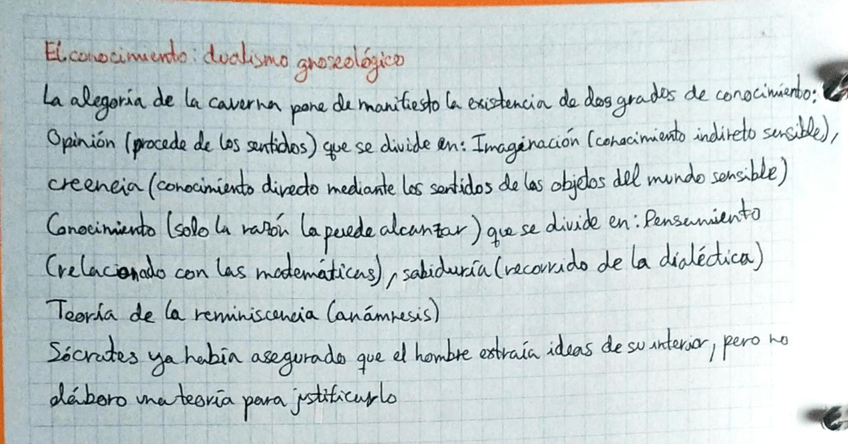 El conocimiento: dualismo gnoseológico
La alegoría de la caverna pone de manifiesto la existencia de dos grados de conocimiento:
Opinión (procede de los sentidos) que se divide en: Imaginación (conocimiento indireto sensible),
creencia (conocimiento directo mediante los sentidos de los objetos del mundo sensible)
Conocimiento (solo la razón la puede alcanzar) que se divide en: Pensamiento
(relacionado con las matemáticas), sabiduría (recorrido de la dialéctica)
Teoría de la reminiscencia (anámnesis)
Sócrates ya había asegurado que el hombre extraía ideas de su interior, pero no
eláboro una teoría para justificarlo